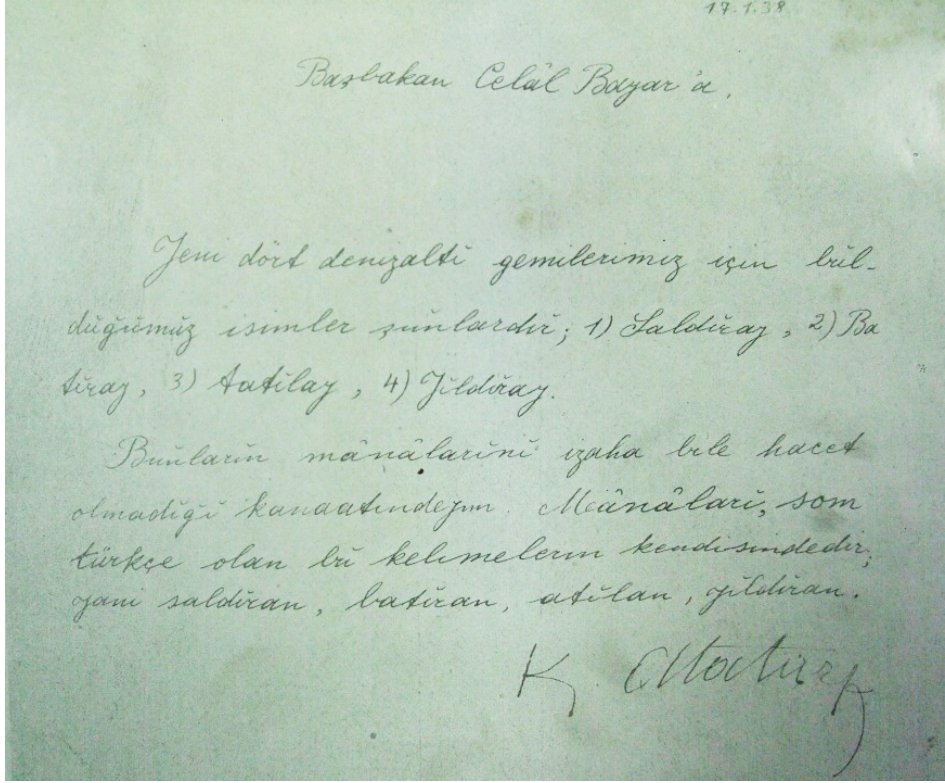 17.1.38
Başbakan Celâl Bayar'a.
Yeni dört denizaltı gemilerimiz için bul-
duğumuz isimler şunlardır; 1) Saldıray, 2) Ba
tıray, 3) Atılay, 4) Yıldıray.
Bunların mânâlarını izaha bile hacet
olmadığı kanaatındeyim. Mânâları, som
türkçe olan bu kelimelerin kendisindedir;
yani saldıran, batıran, atılan, yıldıran.
K. Atatürk